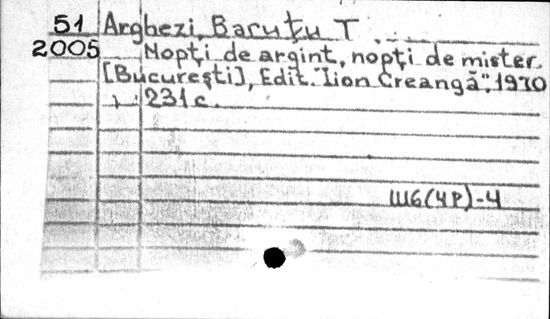 51 Arghezi, Baruţu T
2005 Nopţi de argint, nopţi de mister.
[Bucureşti], Edit. "Iion Creangă", 1970
231 c.
Ш6(4Р)-4